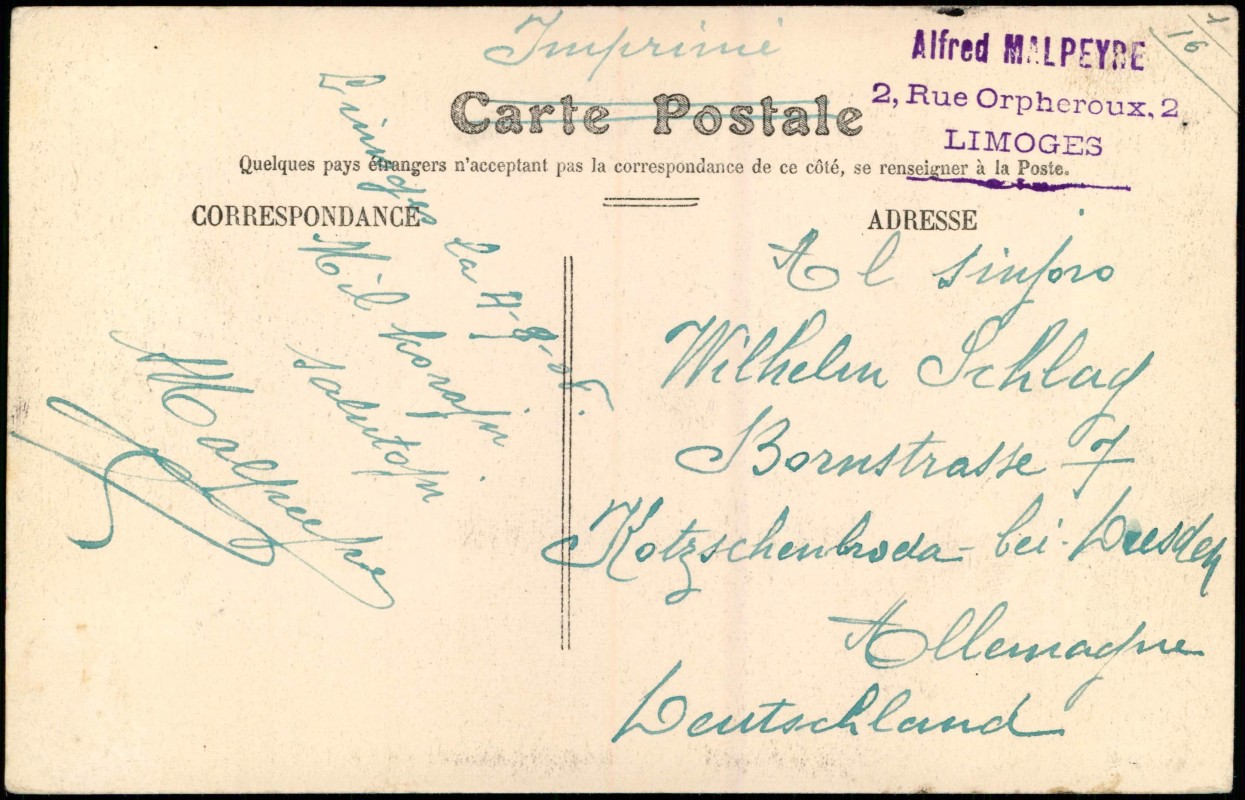 Imprimé
Alfred MALPEYRE
2, Rue Orpheroux, 2
LIMOGES
Carte Postale
Quelques pays étrangers n'acceptant pas la correspondance de ce côté, se renseigner à la Poste.
CORRESPONDANCE
Limoges
La 4-8-08.
Mil korajn
salutojn
Malpeyre
ADRESSE
Al sinjoro
Wilhelm Schlag
Bornstrasse 7
Kotzschenbroda - bei - Dresden
Allemagne
Deutschland